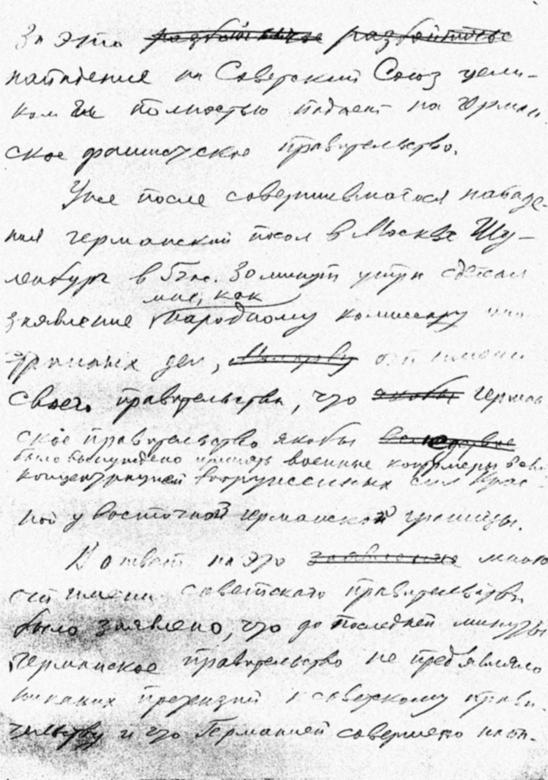 За это разбойничье разбойничье
нападение на Советский Союз цели-
ком и полностью падает на герман
ское фашистское правительство.
Уже после совершившегося нападе-
ния германский посол в Москве Шу-
ленбург в 5 час. 30 минут утра сделал
мне, как
заявление народному комиссару ино
странных дел, Молотову от имени
своего правительства, что якобы герман
ское правительство якобы
было вынуждено принять военные контрмеры в связи
концентрацией вооруженных сил Крас
ной у восточной германской границы.
В ответ на это заявление мною
от имени советского правительства
было заявлено, что до последней минуты
германское правительство не предъявляло
никаких претензий к советскому прави-
тельству и что Германией совершено нап-